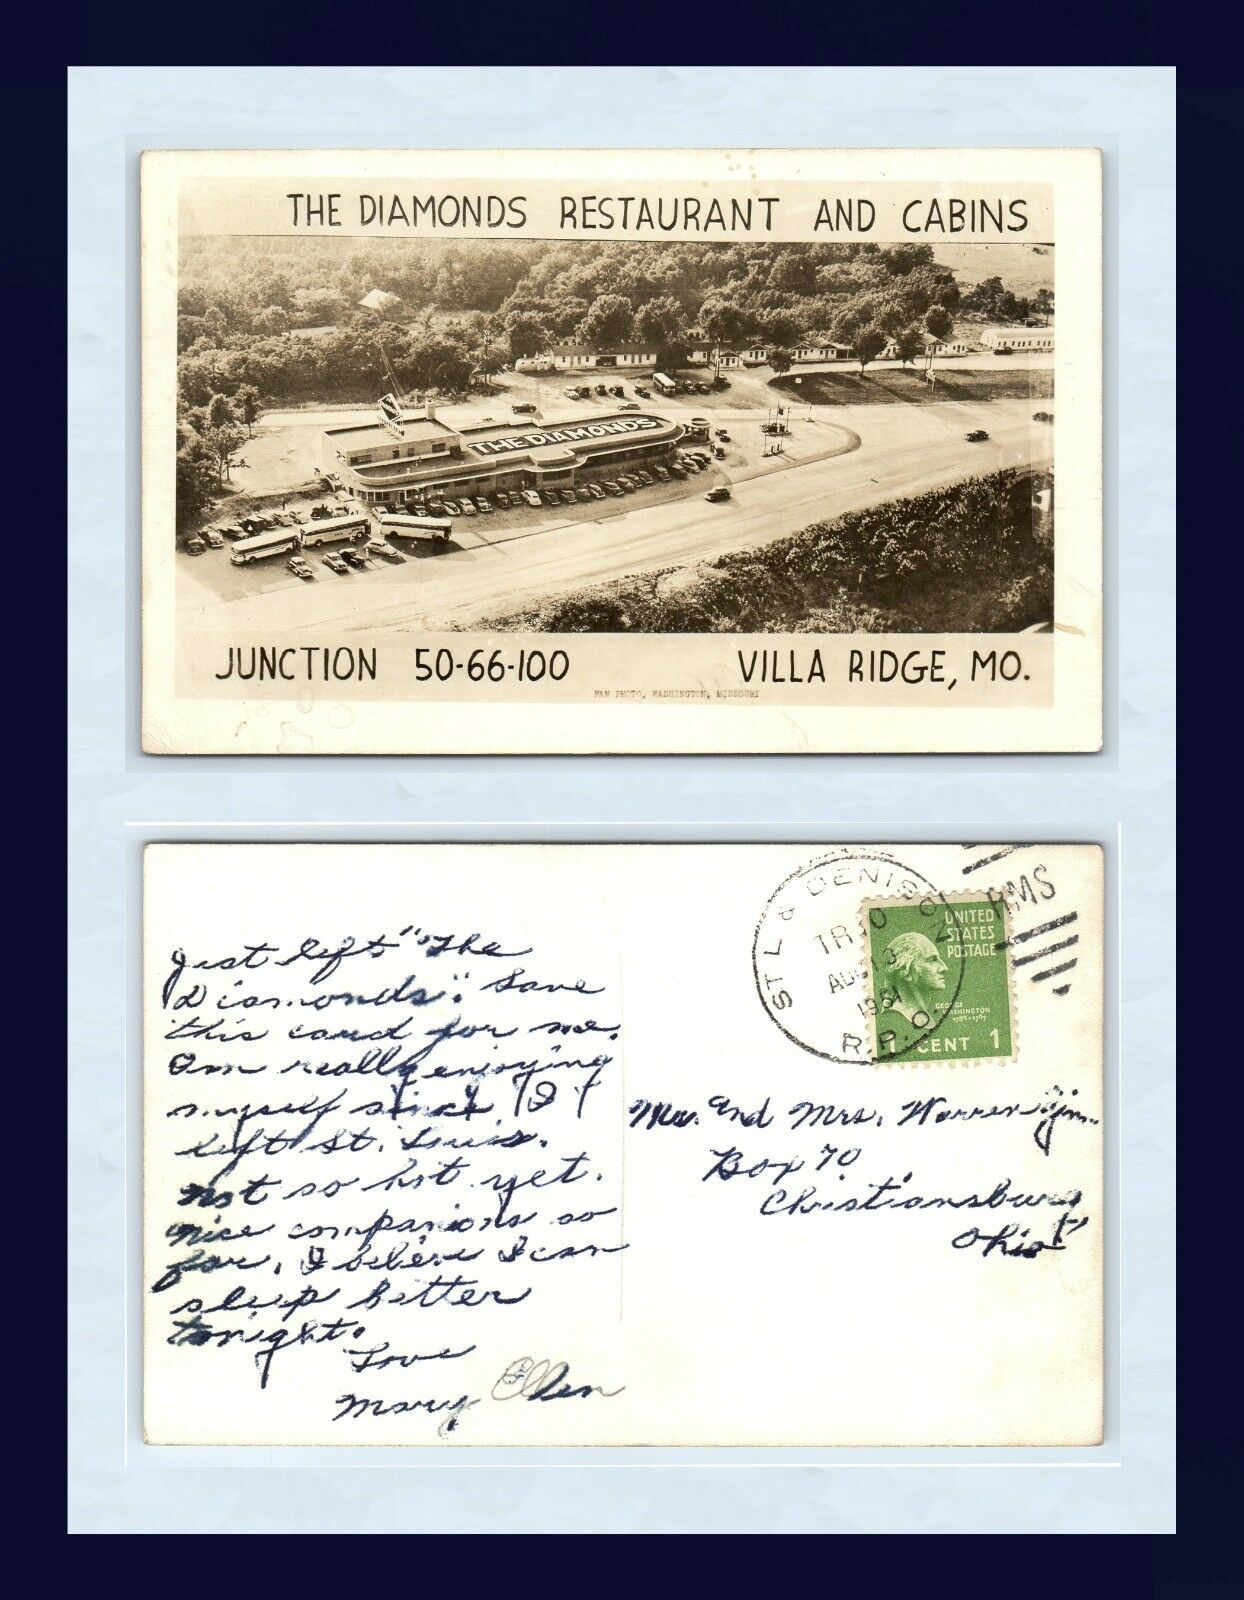 THE DIAMONDS RESTAURANT AND CABINS
THE DIAMONDS
JUNCTION 50-66-100 VILLA RIDGE, MO.
FAN PHOTO, WASHINGTON, MISSOURI
ST L & DENISON
TR 
AUG 13
1951
R.P.O.
RMS
UNITED
STATES
POSTAGE
GEORGE
WASHINGTON
1789-1797
1 CENT 1
Just left "The
Diamonds". Save
this card for me.
Am really enjoying
myself since I
left St. Louis.
not so hot yet.
nice companions so
far. I believe I can
sleep better
tonight.
Love
Mary Ellen
Mr. and Mrs. Warren
Box 70
Christiansburg
Ohio